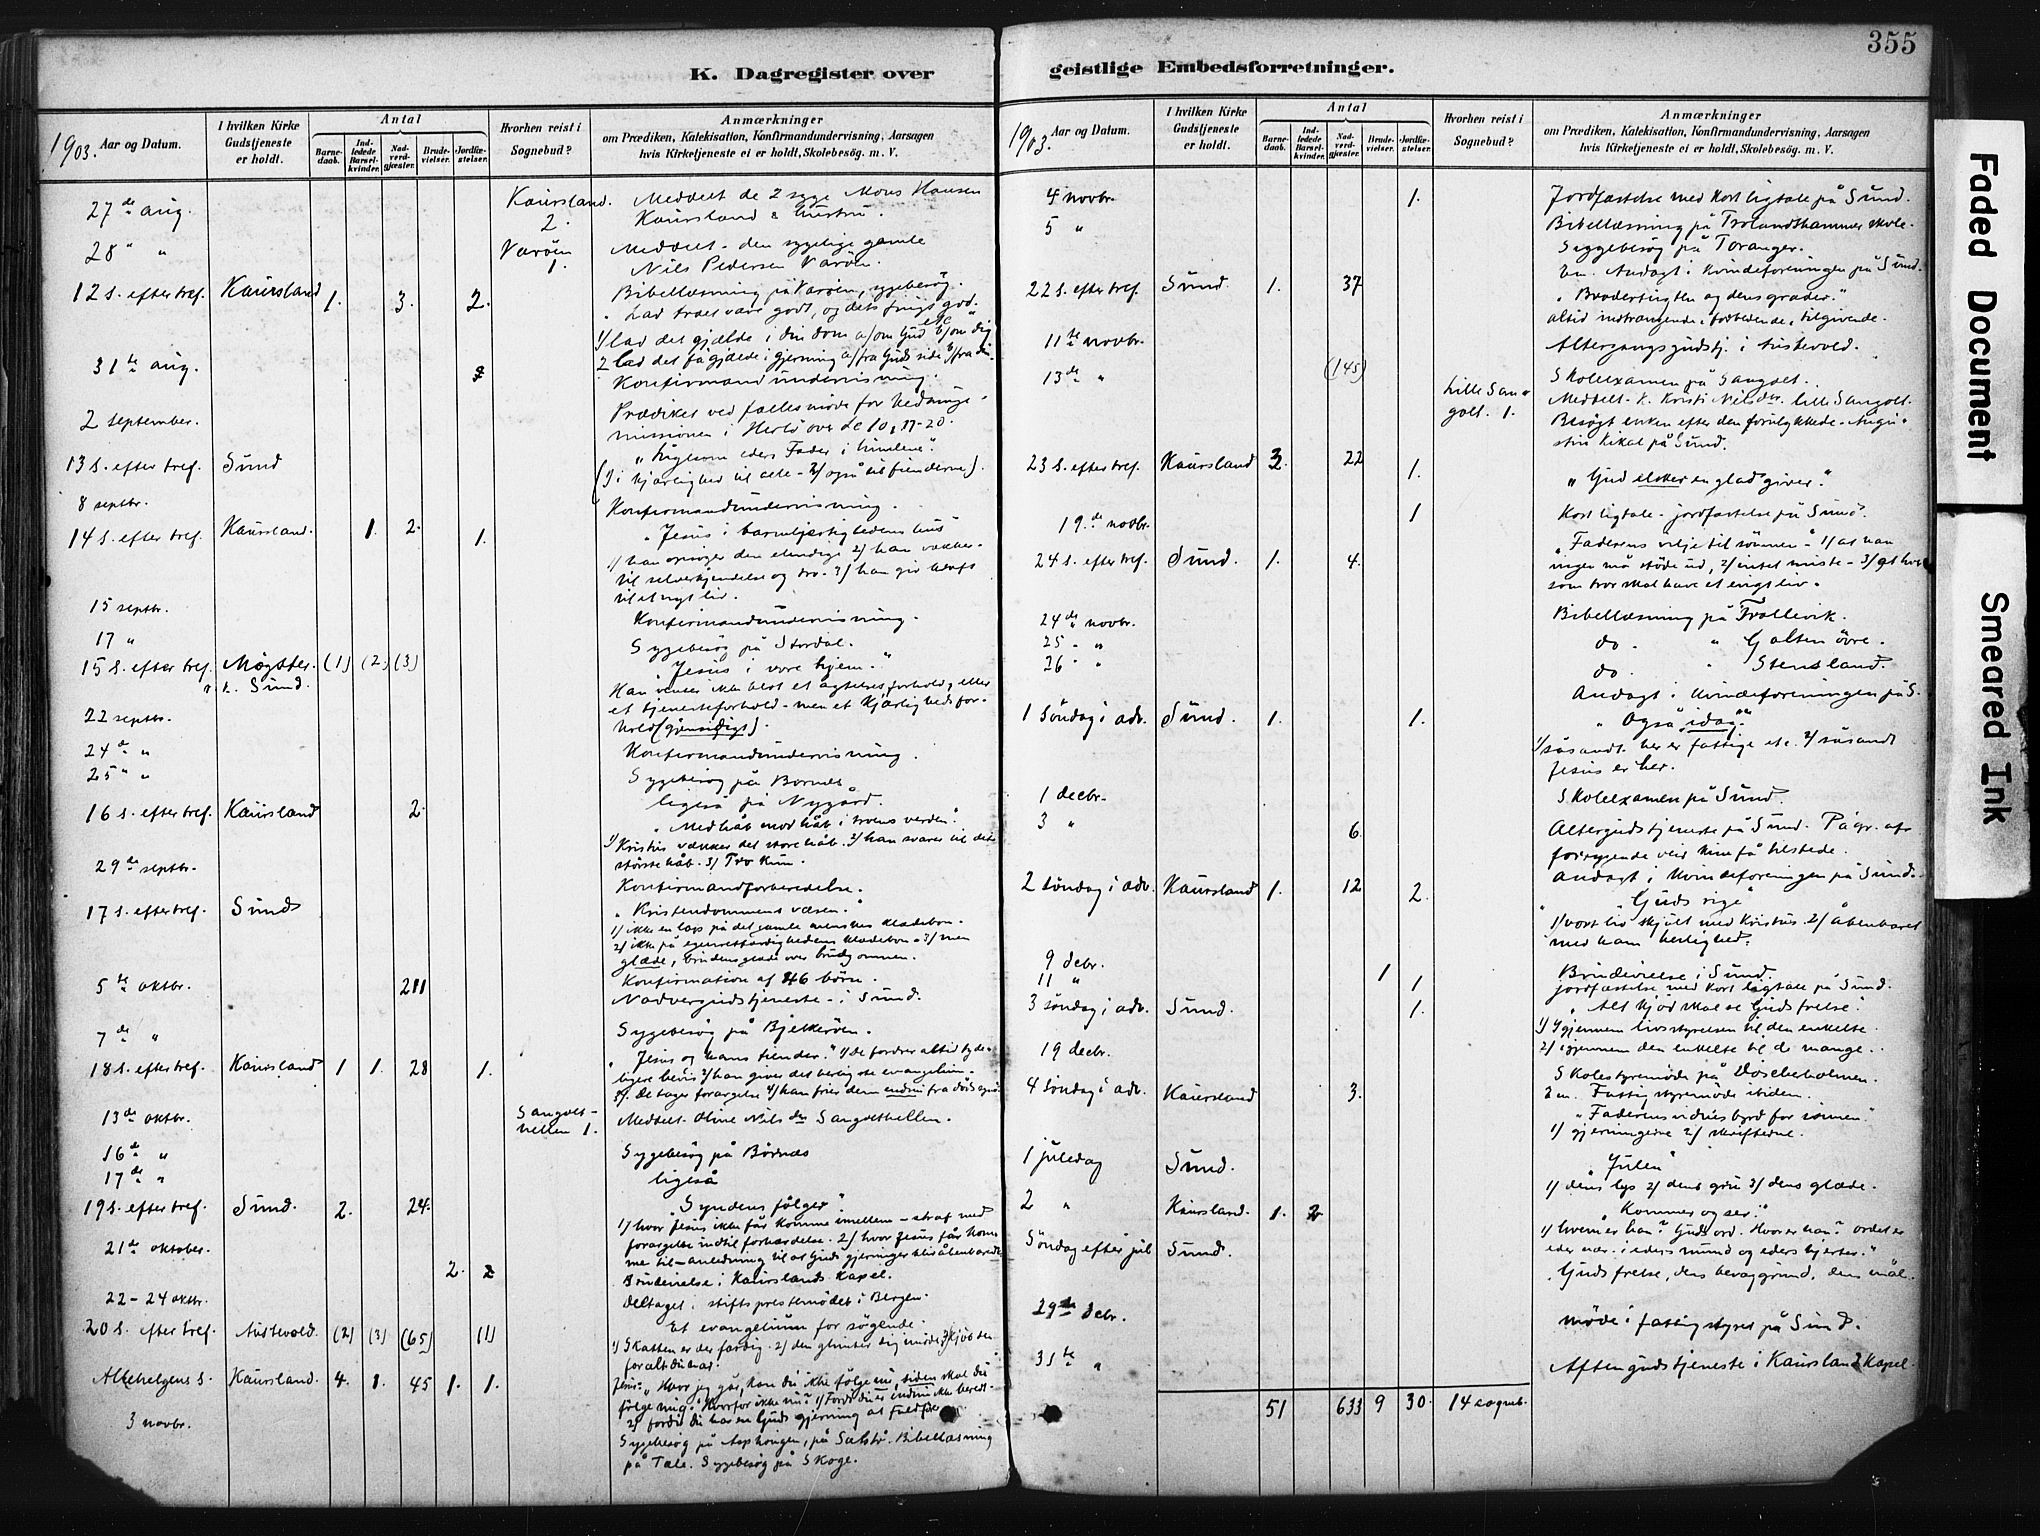 355
K. Dagregister over
geistlige Embedsforretninger.
1903. Aar og Datum.
I hvilken Kirke Gudstjeneste er holdt.
Antal
Barnedaab.
Indledede Barselkvinder.
Nadverdgjæster.
Brudevielser.
Jordfæstelser.
Hvorhen reist i Sognebud?
Anmærkninger
om Prædiken, Katekisation, Konfirmandundervisning, Aarsagen
hvis Kirketjeneste ei er holdt, Skolebesög. m. V.
27de aug. Kaursland. 2. Meddelt de 2 syge Mons Hansen
Kaursland & hustru.
28 " " Varöen 1. Meddelt den sygelige gamle
Nils Pedersen Varöen.
Bibellæsning på Varöen, sygebesög.
12 S. efter tref. Kaursland 1. 3. 2. "Lad træet være godt, og dets frugt god."
1) lad det gjælde i din dom a) om Gud b) om dig
2 lad det få gjælde i gjerning a) fra Guds side b) fra din
31te aug. Konfirmandundervisning.
2 september. Prædiket ved fællesmöde for hedningemissionen
i Herlö over 10, 17-20.
13 S. efter tref. Sund "Ligesom eders Fader i himlene."
(1) i kjærlighed til alle - 2) også til fienderne).
8 septbr. Konfirmandundervisning.
14 S. efter tref. Kaursland. 1. 2. 1. "Jesus i barmhjertighedens hus"
1) han opsöger den elendige 2) han vækker
til selverkjendelse og tro. 3) han gir kraft
til et nyt liv.
15 septbr. Konfirmandundervisning.
17 " Sygebesög på Stordal.
15 S. efter tref. Møgster. (1) (2) (3) "Jesus i vore hjem."
Sund. Han vil ikke blot et agtelsesforhold, eller
et tjenesteforhold - men et kjærlighedsforhold
(gjensidigt).
22 septbr. Konfirmandundervisning.
24de " Sygebesög på Bornes
25 " " ligeså på Nygård.
16 S. efter tref. Kaursland 2. "Med håb mod håb i troens verden."
1) Kristus vækker det store håb. 2) han svarer til det
störste håb. 3) Tro kun.
29de septbr. Konfirmandforberedelse.
17 S. efter tref. Sund "Kristendommens væsen."
1) ikke en lap på det gamle menneskes klædebon.
2) ikke på egenretfærdighedens klædebon - 3) men
glæde, brudens glæde over brudgommen.
5te oktbr. 211 Konfirmation af 46 börn.
Nadvergudstjeneste i Sund.
7de " Sygebesög på Bjelkeröen.
18 S. efter tref. Kaursland 1 1. 28 1. "Jesus og hans fiender." 1) De fordrer altid tydeligere
bevis 2) han giver det herligste evangelium.
3) De tager forargelse 4) han frier dem endnu fra
13de oktbr. Sangolthellen 1. Meddelt Oline Nilsdr Sangolthellen.
16de " Sygebesög på Börnes
17de " ligeså
19 S. efter tref. Sund. 2. 24. "Syndens fölger."
1) hvor Jesus ikke får komme imellem - straf med
forargelse indtil forhærdelse. 2) hvor Jesus får komme
til - anledning til at Guds gjerninger blir åbenbarede
21de oktober. 2. 2 Brudevielse i Kaurslands kapel.
22 - 24 oktbr. Deltaget i stiftsprestemödet i Bergen.
20 S. efter tref. Austevold. (2) (3) (65) (1) Et evangelium for sögende.
1) Skatten er der færdig. 2) den glimter dig imöde 3) kjöb den
for alt du har.
Allehelgens S. Kaursland. 4. 1. 45 1. 1. Jesus: "Hvor jeg går, kan du ikke fölge nu, siden skal du
fölge mig." Hvorfor ikke nu? 1) Fordi du er endnu ikke beredt.
2) fordi du har en Guds gjerning at fuldføre.
3 novbr. Sygebesög på på Bibellæsning
på Tæle. Sygebesög på Skoge.
1903 Aar og Datum.
I hvilken Kirke Gudstjeneste er holdt.
Antal
Barnedaab.
Indledede Barselkvinder.
Nadverdgjæster.
Brudevielser.
Jordfæstelser.
Hvorhen reist i Sognebud?
Anmærkninger
om Prædiken, Katekisation, Konfirmandundervisning, Aarsagen
hvis Kirketjeneste ei er holdt, Skolebesög. m. V.
4 novbr. 1. Jordfæstelse med kort ligtale på Sund.
5 " Bibellæsning på Trolandshammer skole.
Sygebesög på Toranger.
Em. Andagt i kvindeforeningen på Sund.
22 S. efter tref. Sund. 1. 37 "Brodertugten og dens grader."
altid indtrængende, forbedende, tilgivende.
11te novbr. (145) Altergangsgudstj. i Austevold.
13de " Lille Sangolt. 1. Skoleexamen på Sangolt.
Meddelt k. Kristi Nilsdr. lille Sangolt.
Besögt enken efter den forulykkede Augustinus
på Sund.
23 S. efter tref. Kaursland 3. 22 1. "Gud elsker en glad giver."
19de novbr. 1 Kort ligtale - jordfæstelse på Sund.
24 S. efter tref. Sund. 1. 4. "Faderens vilje til sönnen" 1) at han
ingen må stöde ud, 2) intet miste - 3) at hver
som tror skal have et evigt liv.
24de novbr. Bibellæsning på Trollevik.
25 " " do. " Golten övre.
26 " do. " Stensland.
Andagt i kvindeforeningen på S.
1 Söndag i adv. Sund. 1. 1. "Også idag."
1) såsandt her er fattige etc. 2) såsandt
Jesus er her.
1 decbr. Skoleexamen på Sund.
3 " 6. Altergudstjeneste på Sund. På gr. af
forrygende veir kun få tilstede.
Andagt i kvindeforeningen på Sund.
2 Söndag i adv. Kaursland 1. 12 2. "Guds rige"
1) vort liv skjult med Kristus. 2) åbenbaret
med ham herlighed.
9 debr. 1 Brudevielse i Sund.
11 " 1 Jordfæstelse med kort ligtale på Sund.
3 söndag i adv. Sund. 1. "Alt kjöd skal se Guds frelse."
1) gjennem livsstyrelsen til den enkelte.
2) igjennem den enkelte til de mange.
19 decbr. Skolestyremöde på Döseholmen.
Em. Fattigstyremöde ibiden.
4 söndag i adv. Kaursland 3. "Faderens vidnesbyrd for sönnen."
1) gjerningerne 2) skrifterne.
1 juledag Sund. "Julen"
1) dens lys 2) dens 3) dens glæde.
2 " Kaursland. 1. 2 "Kommer og ser."
1) hvem er han? Guds ord. Hvor er han? ordet er
eder nær i eders mund og eders hjerter."
Söndag efter jul Sund. "Guds frelse, dens bevæggrund, dens mål.
29de debr. möde i fattigstyret på Sund.
31te " Aftengudstjeneste i Kaursland kapel.
51 633 9 30. 14 sogneb.
Faded Document
Smeared Ink